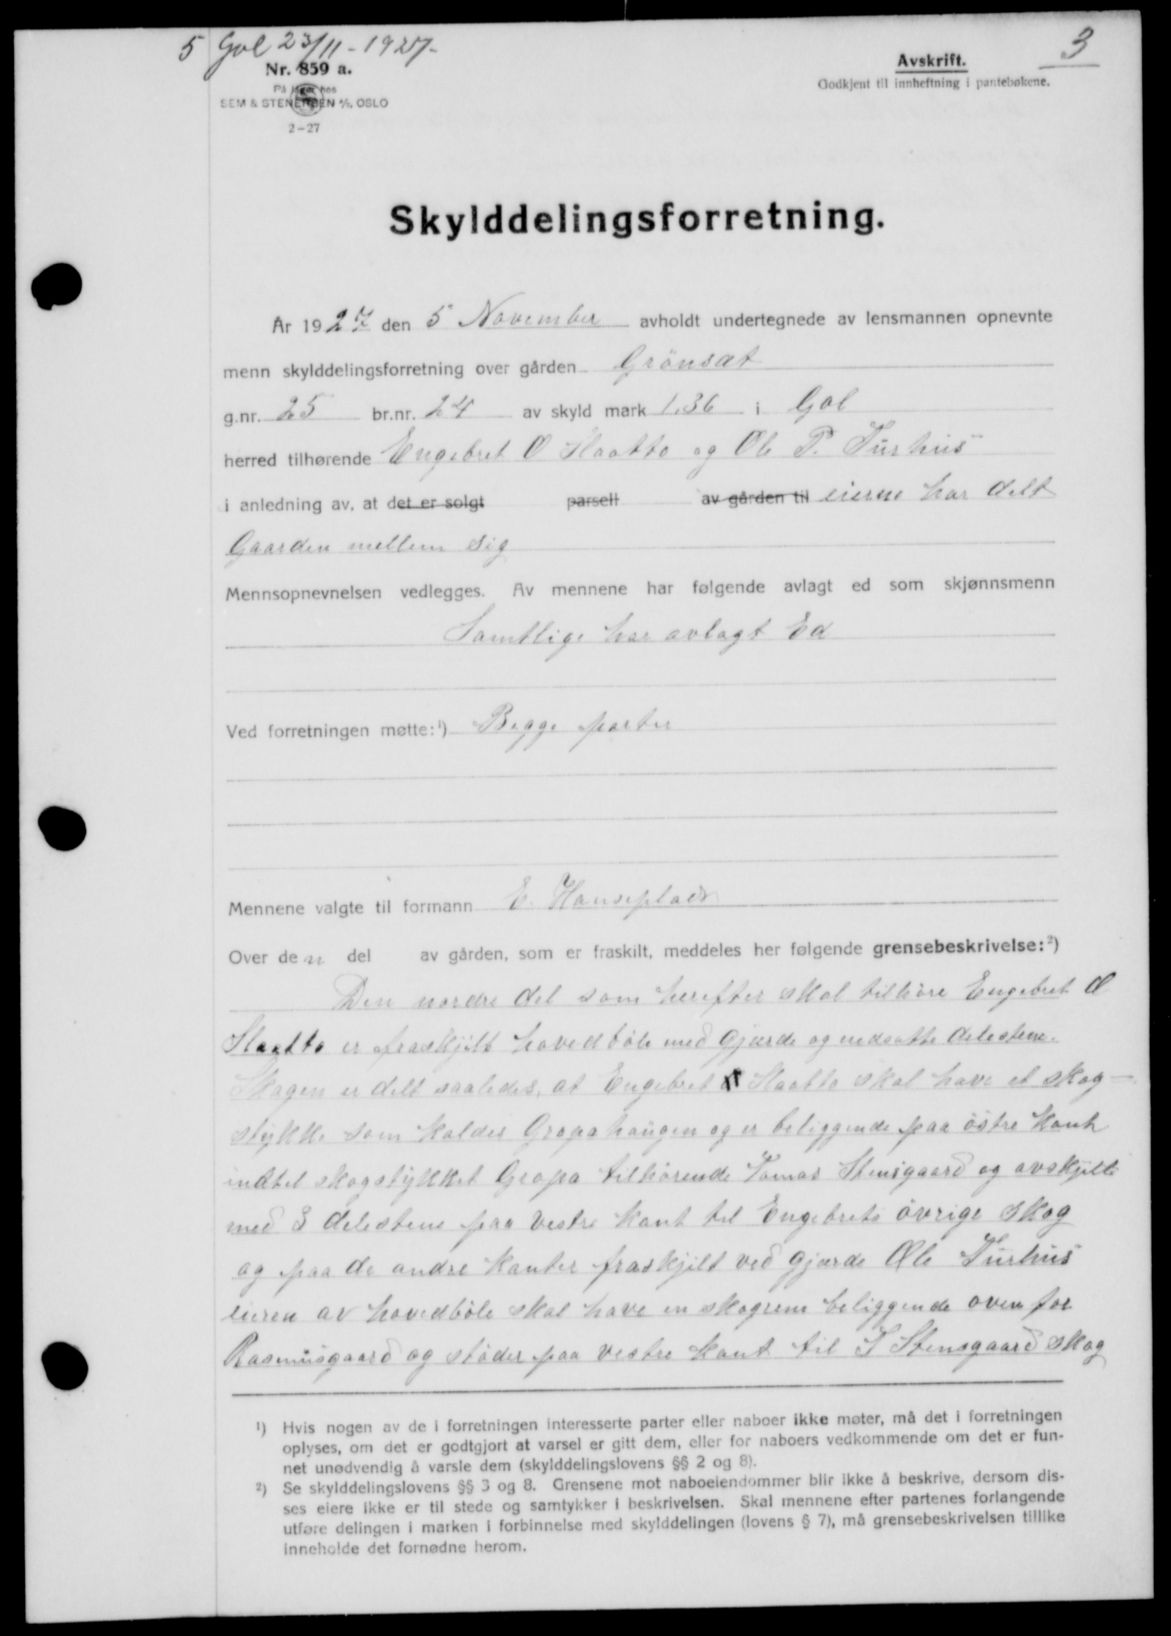 5 Gol 23/11-1927-
3
Nr. 859 a.
På lager hos
SEM & STENERSEN A/S, OSLO
2-27
Avskrift.
Godkjent til innheftning i pantebøkene.
Skylddelingsforretning.
År 1927 den 5 November avholdt undertegnede av lensmannen opnevnte
menn skylddelingsforretning over gården Grönsæt
g.nr. 25 br.nr. 24 av skyld mark 1.36 i Gol
herred tilhørende Engebret O Slaatto og Ole P. Turhus
i anledning av, at det er solgt parsell av gården til eierne har delt
Gaarden mellem sig
Mennsopnevnelsen vedlegges. Av mennene har følgende avlagt ed som skjønnsmenn
Samtlige har avlagt Ed
Ved forretningen møtte:¹) Begge parter
Mennene valgte til formann E. Hanseplads
Over den del av gården, som er fraskilt, meddeles her følgende grensebeskrivelse:²)
Den nordre del som herefter skal tilhöre Engebret O
Slaatto er fraskjilt hovedböle med gjærde og nedsatte delestene.
Skogen er delt saaledes, at Engebret Slaatto skal have et skog-
stykke som kaldes Gropahaugen og er beliggende paa östre kant
indtil skogstykket Gropa tilhörende Tomas Stensgaard og avskjilt
med 3 delestene paa vestre kant til Engebrets övrige skog
og paa de andre kanter fraskjilt ved gjærde Ole Turhus
eieren av hovedböle skal have en skogrem beliggende oven for
Rasmusgaard og stöder paa vestre kant til T Stensgaard skog
¹) Hvis nogen av de i forretningen interesserte parter eller naboer ikke møter, må det i forretningen
oplyses, om det er godtgjort at varsel er gitt dem, eller for naboers vedkommende om det er fun-
net unødvendig å varsle dem (skylddelingslovens §§ 2 og 8).
²) Se skylddelingslovens §§ 3 og 8. Grensene mot naboeiendommer blir ikke å beskrive, dersom dis-
ses eiere ikke er til stede og samtykker i beskrivelsen. Skal mennene efter partenes forlangende
utføre delingen i marken i forbinnelse med skylddelingen (lovens § 7), må grensebeskrivelsen tillike
inneholde det fornødne herom.